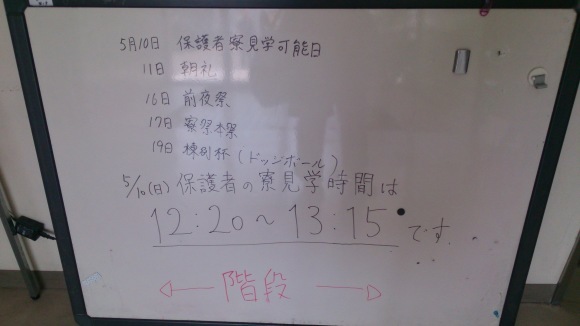 5月10日 保護者寮見学可能日
11日 朝礼
16日 前夜祭
17日 寮祭本祭
19日 棟別杯(ドッジボール)
5/10(日)保護者の寮見学時間は
12:20~13:15です。
← 階段 →